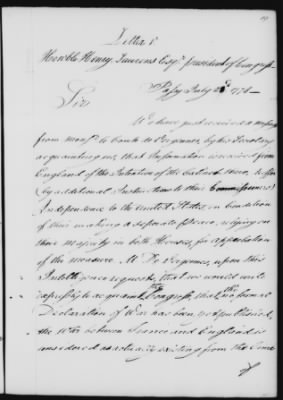 Letter
Honorble Henry Laurens Esqr. president of Congress
Passy July 1778 —
Sir
We have just received a messag
from Monsr. le Comte de Vergennes, by his Secretary
acquainting us, that Information is received from
England of the Intention of the Cabinet there, to offer
(by additional Instructions to their Commissioners)
Independence to the United States, on Condition
of their making a separate Peace, relying on
their majority in both Houses, for approbation
of the measure. M. De Vergennes, upon this
Intelligence requests, that we would write
expressly to acquaint the Congress, that tho no formal
Declaration of War has been, yet published,
the War between France and England is
considered as actually existing from the Time
of